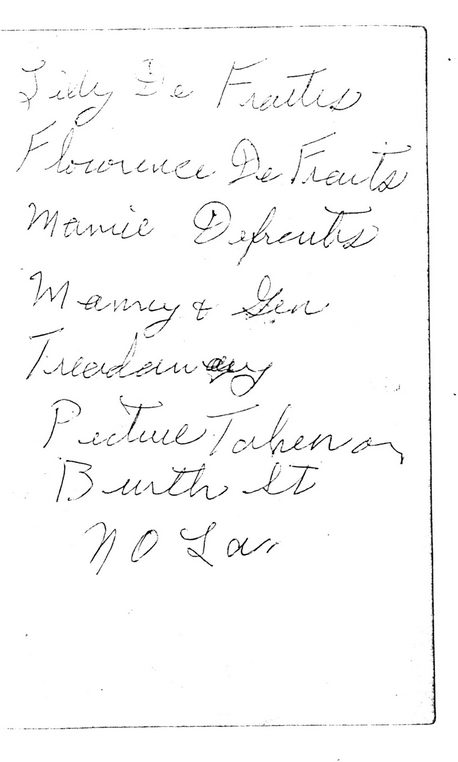 Lidy De Fraites
Flourence De Fraits
Mamie Defraits
Manny & Gen
Treadaway
Picture Taken on
Burth St
N O La.